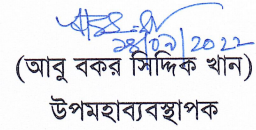 ২৪/০৯/২০২২
(আবু বকর সিদ্দিক খান)
উপমহাব্যবস্থাপক